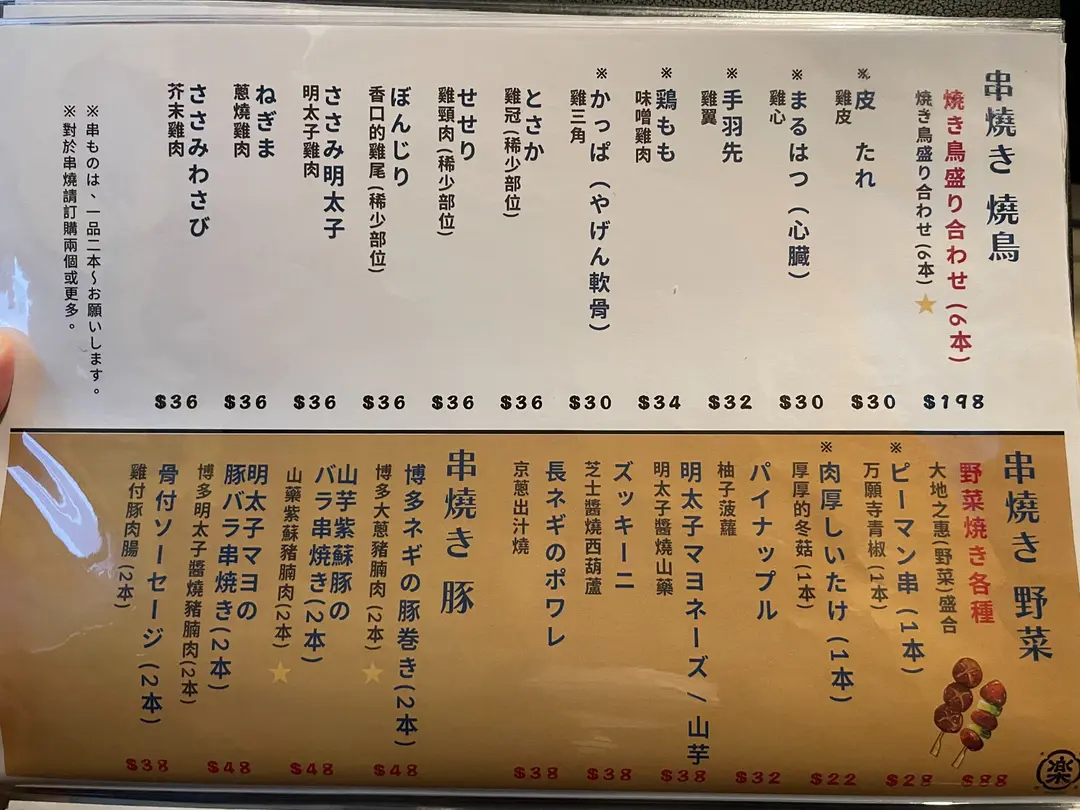 串燒き 燒鳥
焼き鳥盛り合わせ (6本)
焼き鳥盛り合わせ (6本)
$198
※皮 たれ
雞皮
$30
※まるはつ (心臓)
雞心
$30
※手羽先
雞翼
$32
※鶏もも
味噌雞肉
$34
※かっぱ (やげん軟骨)
雞三角
$30
とさか
雞冠 (稀少部位)
$36
せせり
雞頸肉 (稀少部位)
$36
ぼんじり
香口的雞尾 (稀少部位)
$36
ささみ明太子
明太子雞肉
$36
ねぎま
蔥燒雞肉
$36
ささみわさび
芥末雞肉
$36
※串ものは、一品二本～お願いします。
※對於串燒請訂購兩個或更多。
串燒き 野菜
野菜焼き各種
大地之惠(野菜)盛合
$88
※ピーマン串 (1本)
万願寺青椒 (1本)
$28
※肉厚しいたけ (1本)
厚厚的冬菇 (1本)
$22
パイナップル
柚子菠蘿
$32
明太子マヨネーズ / 山芋
明太子醬燒山藥
$38
ズッキーニ
芝士醬燒西葫蘆
$38
長ネギのポワレ
京蔥出汁燒
$38
串燒き 豚
博多ネギの豚巻き(2本)
博多大蔥豬腩肉 (2本)
$48
山芋紫蘇豚の
バラ串焼き(2本)
山藥紫蘇豬腩肉(2本)
$48
明太子マヨの
豚バラ串焼き(2本)
博多明太子醬燒豬腩肉(2本)
$48
骨付ソーセージ (2本)
雞付豚肉腸 (2本)
$38
楽